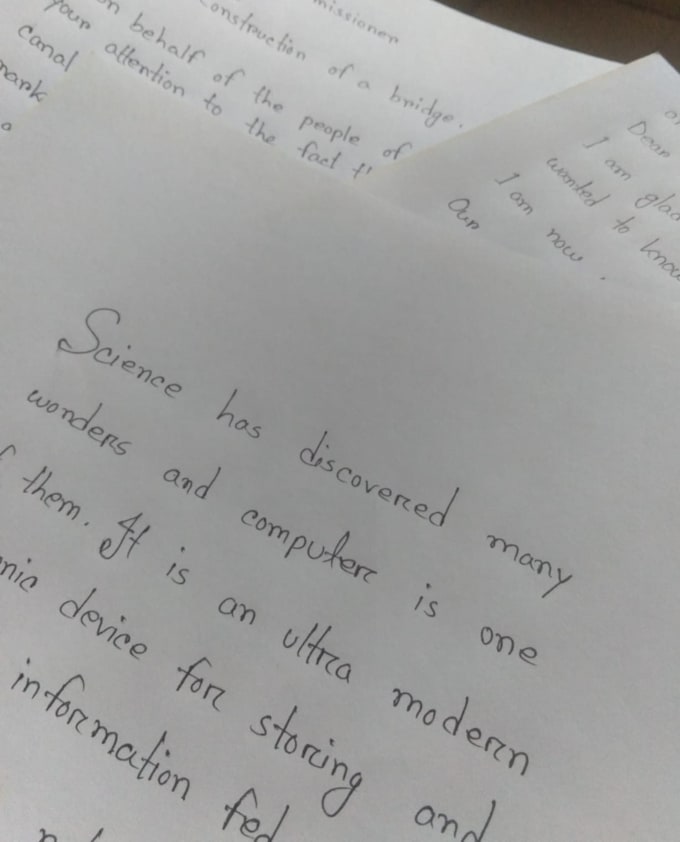 missioner
onstruction of a bridge.
on behalf of the people of
your attention to the fact
canal
mark
Dear
I am glad
wanted to know
I am now.
Our
Science has discovered many
wonders and computer is one
them. It is an ultra modern
nic device for storing and
information fed